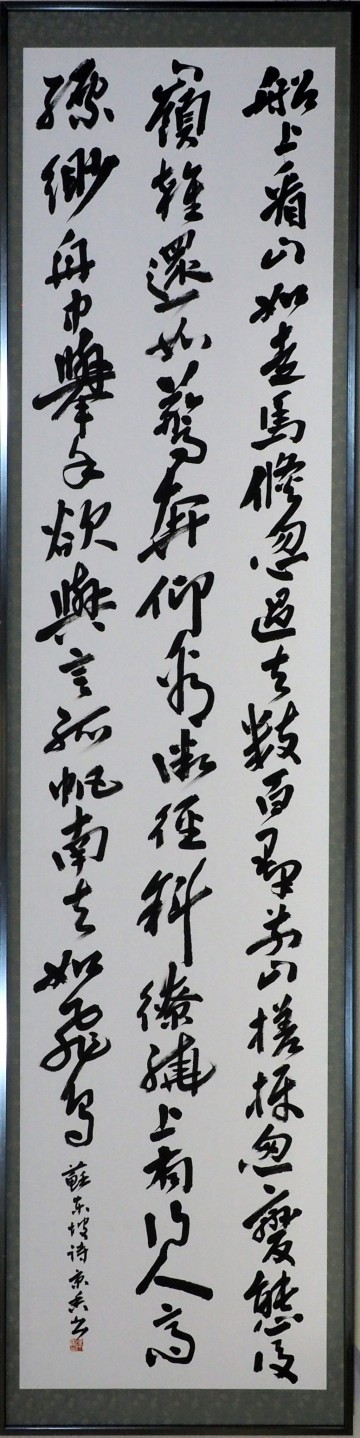 船上看山如走馬倏忽過去數百群前山槎枒忽變態後
嶺雜遝如驚奔仰看微徑斜繚繞上有行人高
縹緲舟中舉手欲與言孤帆南去如飛鳥
蘇東坡詩京香書